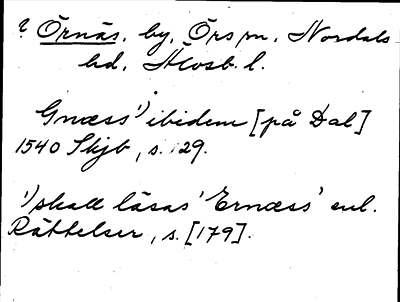 ? Örnäs, by, Örs sn, Nordals
hd, Älvsb. l.
Gnæss¹) ibidem [på Dal]
1540 Skjb, s. 29.
¹) skall läsas 'Ernæss' enl.
Rättelser, s. [179].